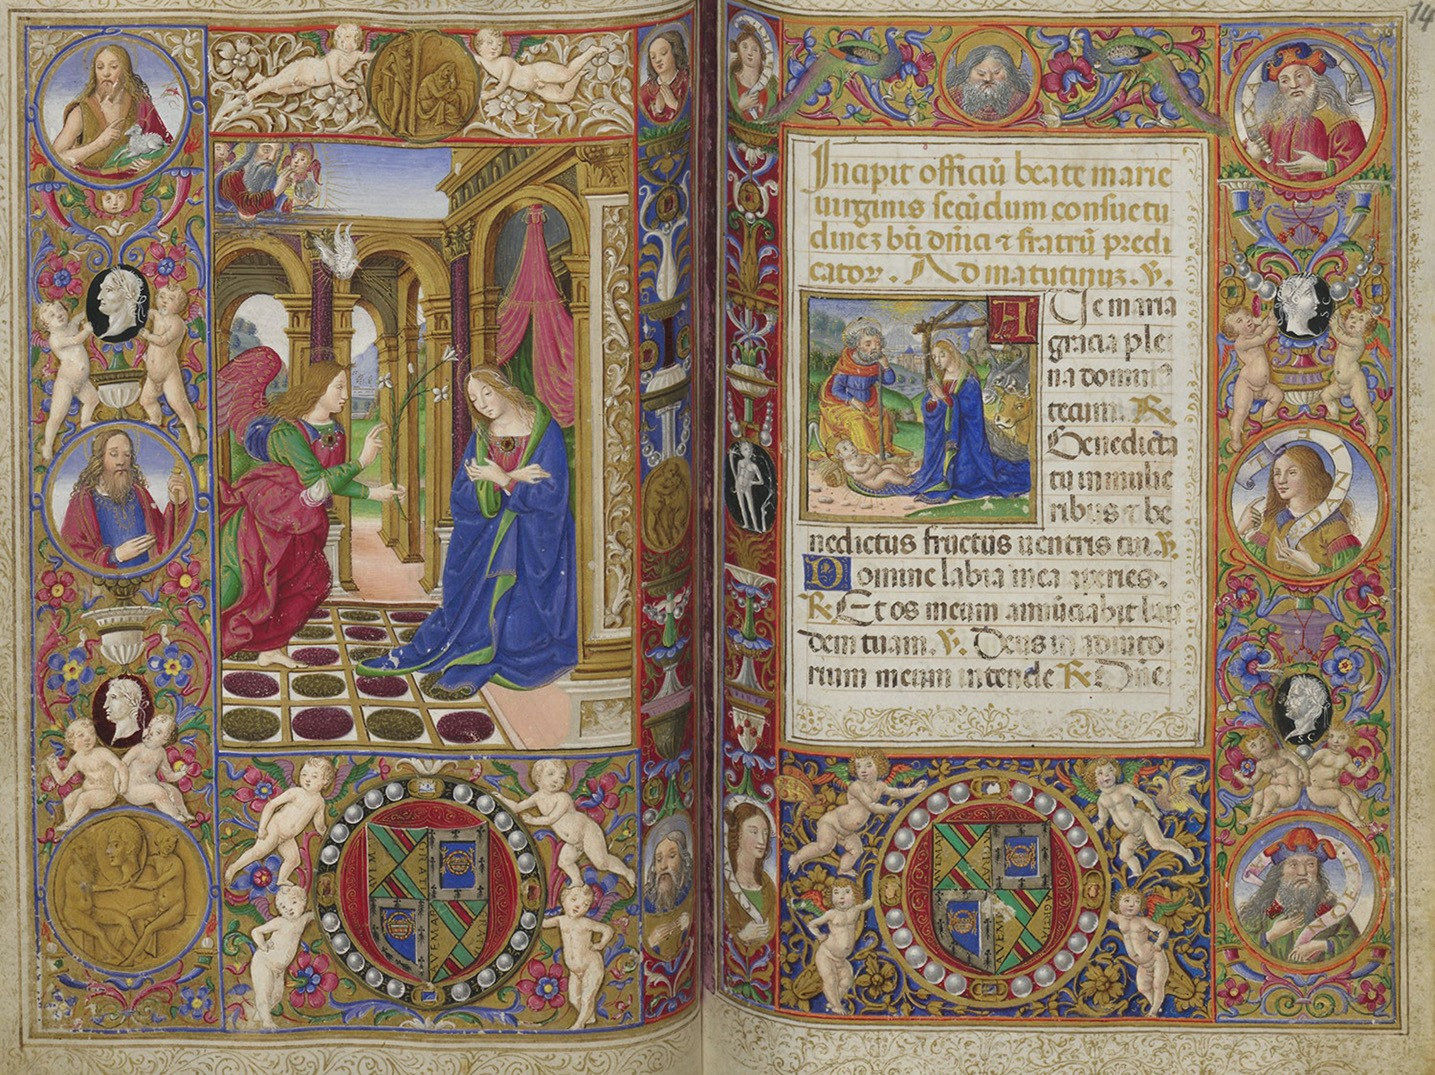 14
Incipit officiu᷑ beate marie
uirginis secu᷑dum consuetu
dineꝫ
fratru᷑ predi
cator. Ad matutinuꝫ. ℣.
A Ue maria
gracia ple
na dominꝰ
tecum. ℟
Benedicta
tu in mulie
ribus ⁊ be
nedictus fructus uentris tui. ℣.
Domine labia mea aperies.
℟. Et os meum annu᷑ciabit lau
dem tuam. ℣. Deus in adiuto
rium meum intende ℟ Dn᷑e